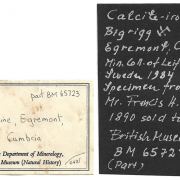 part BM 65723
ine, Egremont,
Cumbria
Department of Minerology,
Museum (Natural History)
Calcite-iro
Bigrigg
Egremont, C
Min. Col. of Leif
Sweden 1984
Specimen fro
Mr. Francis H.
1890 sold to
British Museu
BM 65723
(Part)